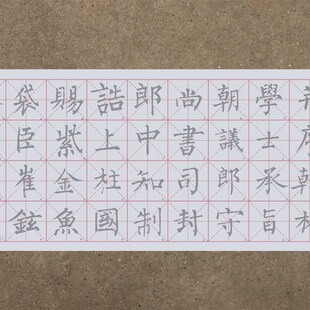 學士承旨
朝議郎守
尚書司封
郎中知制
誥上柱國
賜紫金魚
袋臣崔鉉